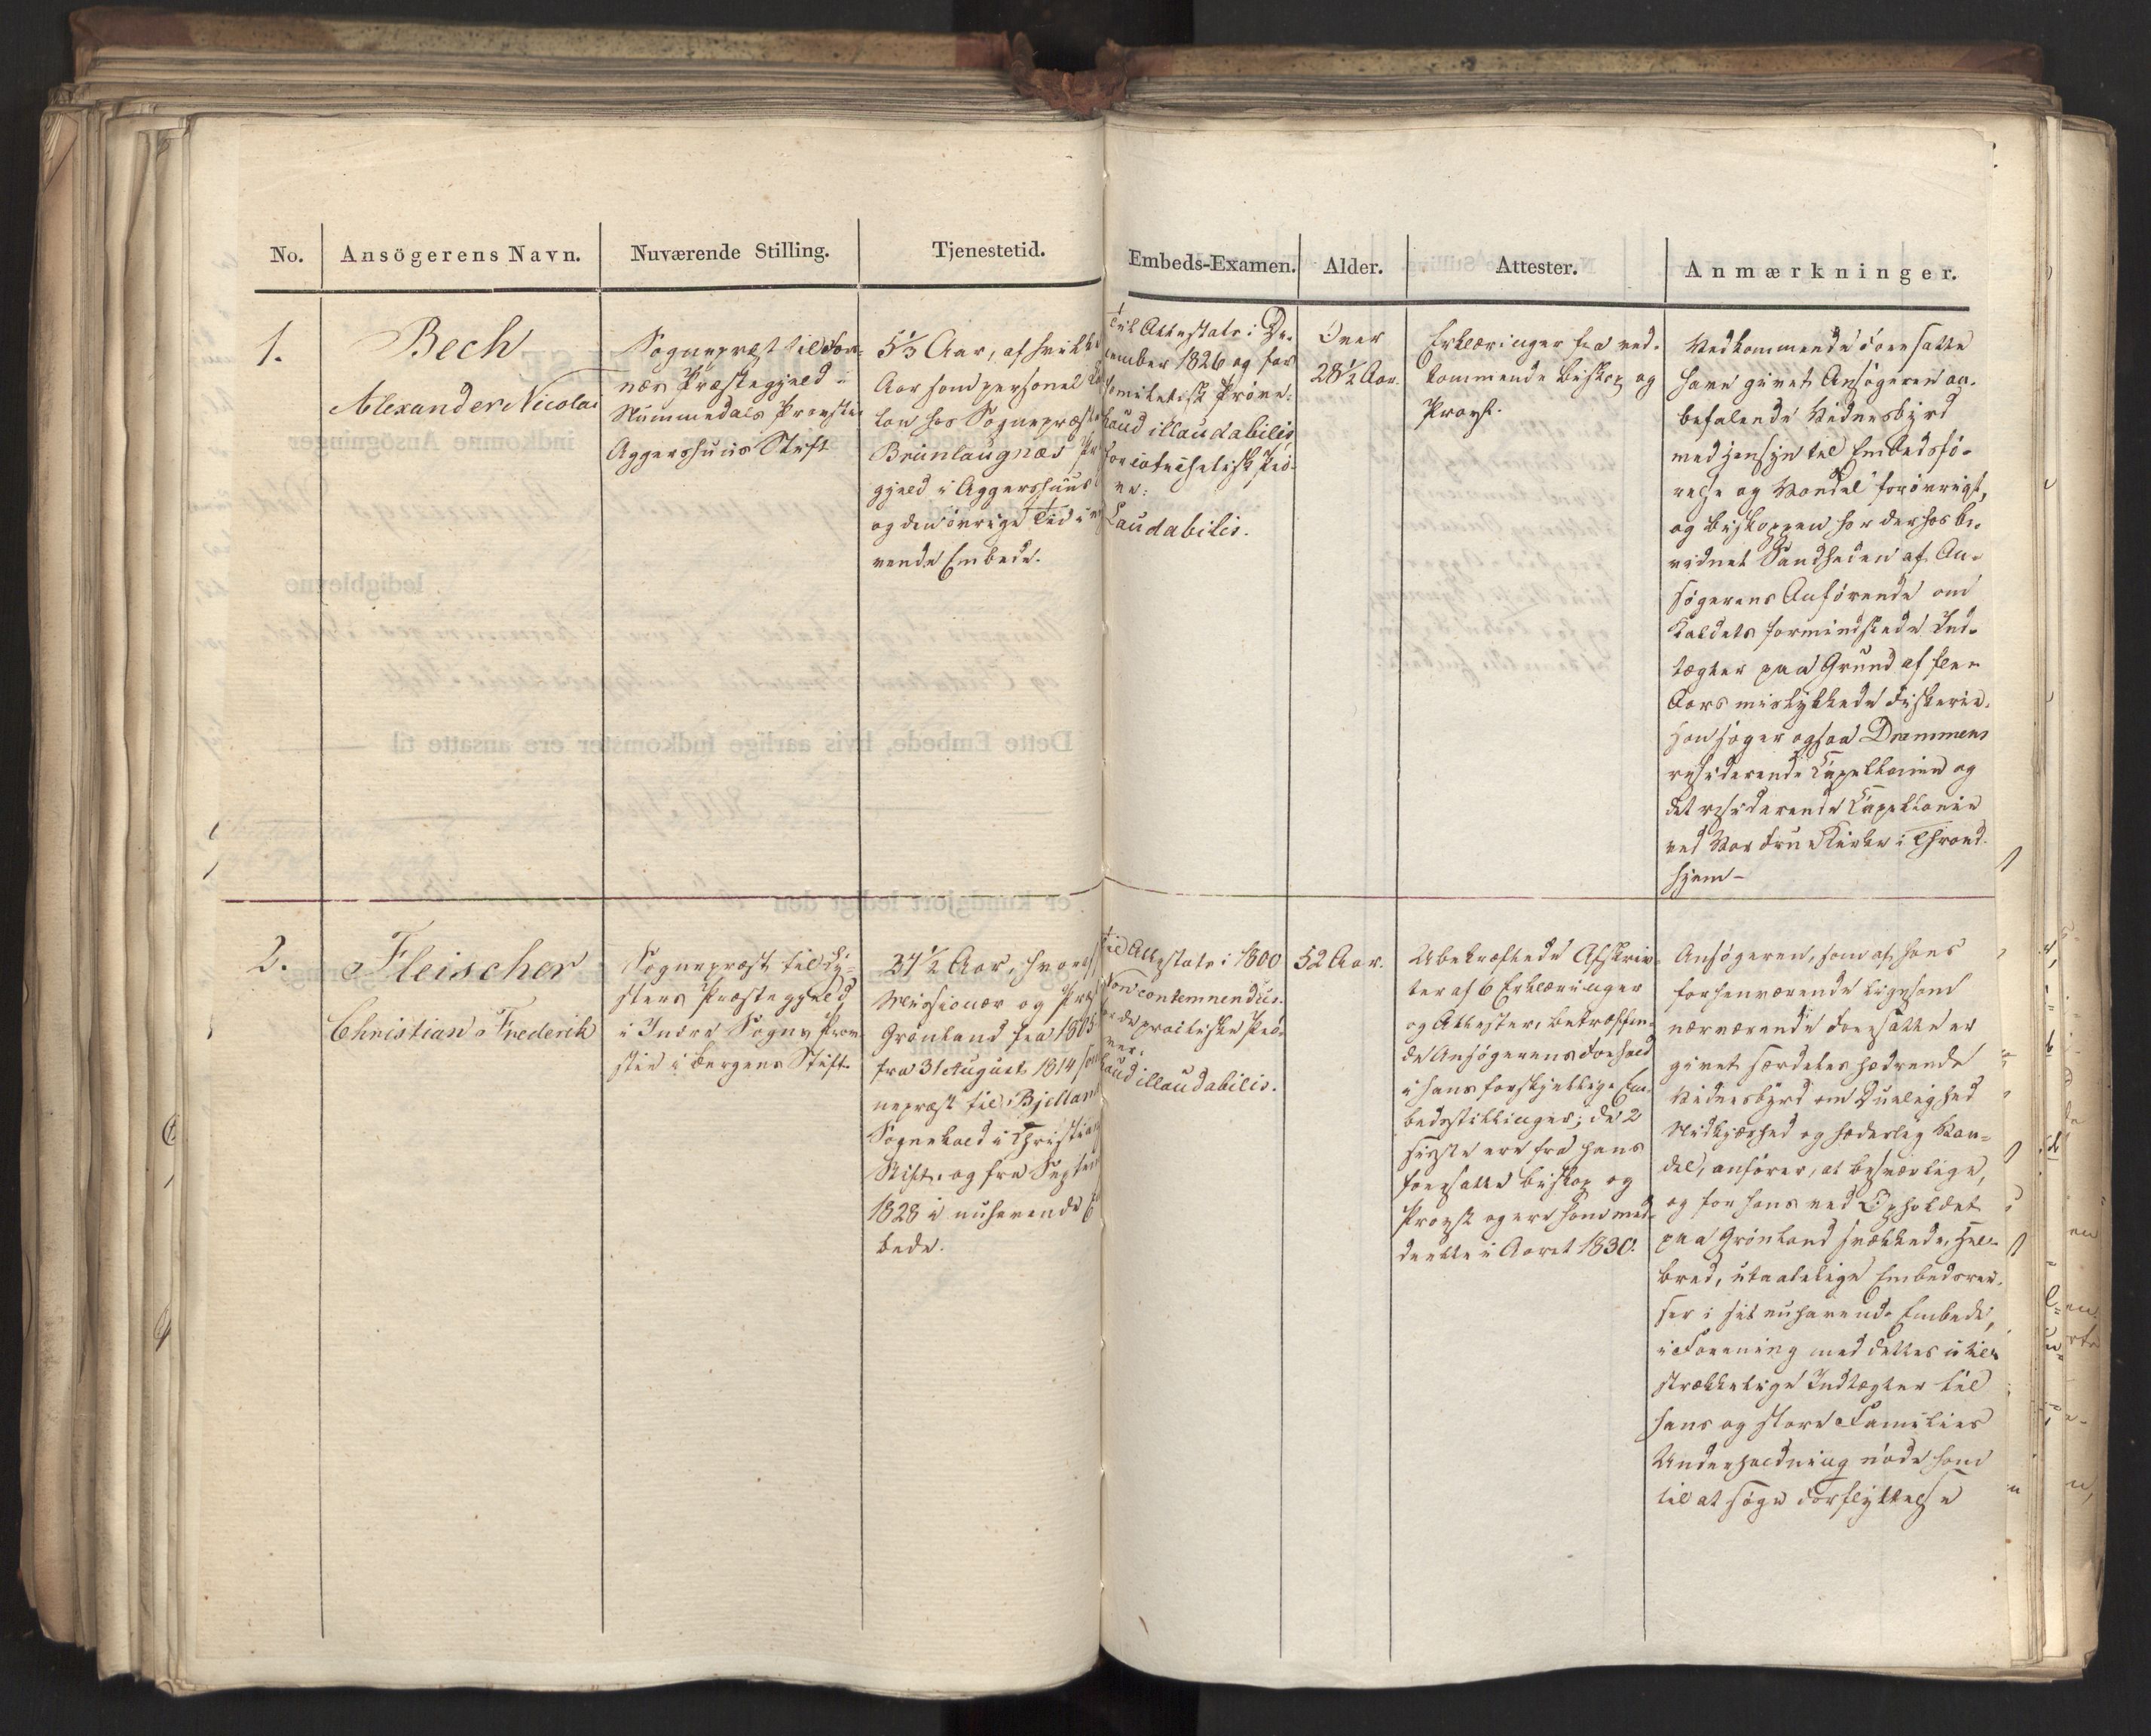 No.
Ansögerens Navn.
Nuværende Stilling.
Tjenestetid.
Embeds-Examen.
Alder.
Attester.
Anmærkninger.
1.
Bech
Alexander Nicolai
Sognepræst til Foss-
næs Præstegjeld i
Nummedals Provstie
Aggershuus Stift
5⅓ Aar, af hvilke
Aar som personel
lan hos Sognepræsten
Brunlaugnæs
gjeld i Aggershuus
og den övrige Tid i
rende Embede.
Til Attestats i De-
cember 1826 og for
homiletisk Pröve:
haud illaudabilis,
for catechetisk Prö-
ve:
Laudabilis.
Over
28½ Aar.
Erklæringer fra ved-
kommende Biskop og
Provst.
Vedkommende Foresatte
have givet Ansögeren an-
befalende Vidnesbyrd
med Hensyn til Embedsfö-
relse og Vandel forövrigt,
og Biskoppen har derhos be-
vidnet Sandheden af An-
sögerens Anförende om
Kaldets formindskede Ind-
tægter paa Grund af flere
Aars mislykkede Fiskerie.
Han söger ogsaa Drammens
residerende Capellanie og
det residerende Capellanie
ved Vor Frue Kirke i Thrond-
hjem-
2.
Fleischer
Christian Frederik
Sognepræst til Ly-
sters Præstegjeld
i Indre Sogns Prov-
stie i Bergens Stift.
27½ Aar, hvoraf
Missionær og
Grönland fra
fra 31 August 1814
nepræst til Bjelland
Sognekald i Christians
Stift. og fra Septem
1828 i nuhavende
bede.
Til Attestats i 1800
Non contemnendus.
for de practiske Prö-
ver:
haud illaudabilis.
52 Aar.
Ubekræftede Afskriv-
ter af 6 Erklæringer
og Attester, beträffen-
de Ansögerens Forhold
i hans forskjellige Em-
bedsstillinger; de 2
sidste ere fra hans
foresatte Biskop og
Provst og ere ham med-
deelte i Aaret 1830.
Ansögeren, som af hans
forhenværende ligesom
nærværende Foresatte er
givet særdeles hædrende
Vidnesbyrd om Duelighed
Nidkjærhed og hæderlig Van-
del, anförer, at besværlige,
og for hans ved Opholdet
paa Grönland svækkede, Hel-
bred, utaalelige Embedsrei-
ser i sit nuhavende Embede,
i Forening med dettes util-
strækkelige Indtægter til
hans og store Families
Underholdning nöde ham
til at söge Forflyttelse